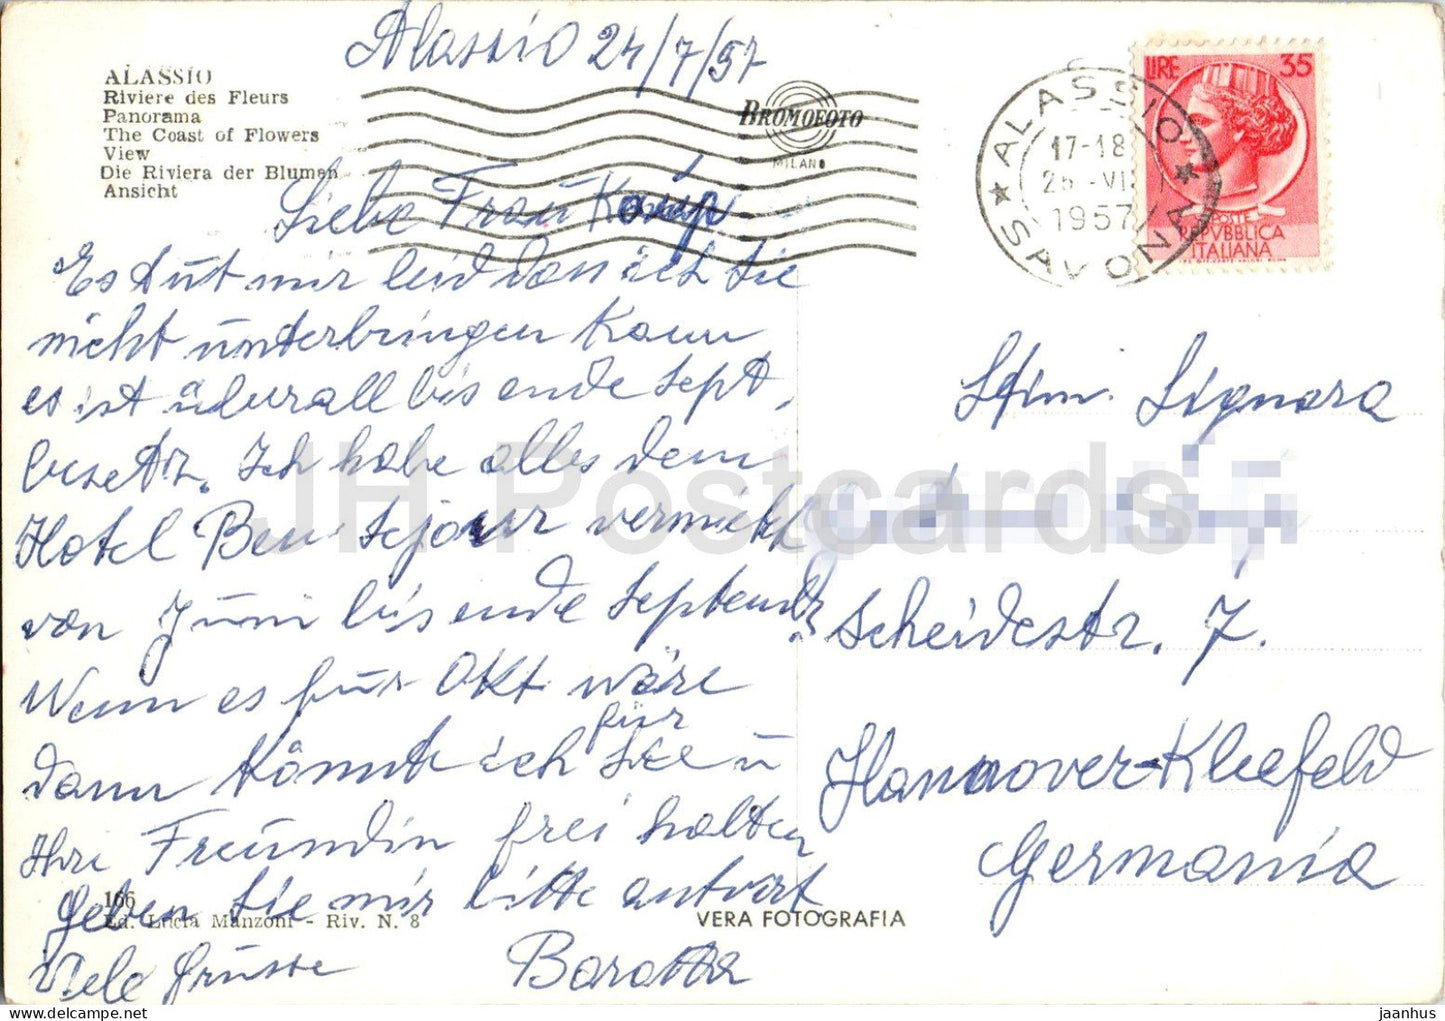 Alassio 24/7/57
ALASSIO
Riviere des Fleurs
Panorama
The Coast of Flowers
View
Die Riviera der Blumen
Ansicht
BROMOFOTO
MILANO
ALASSIO
17-18
25-VII
1957
SAVONA
LIRE 35
POSTE
REPVBBLICA
ITALIANA
Liebe Frau
Es tut mir leid dass ich Sie
nicht unterbringen kann
es ist überall bis ende Sept,
besetzt. Ich habe alles dem
Hotel Beau Sejour vermiett
von Juni bis ende September
Wenn es für Okt wäre
dann könnte ich für Sie u
Ihre Freundin frei halten
geben Sie mir bitte antwort
Viele Grüsse
Stim. Signora
Scheidestr. 7.
Hannover-Kleefeld
Germania
166
Ed. Lucia Manzoni - Riv. N. 8
VERA FOTOGRAFIA
JH Postcards
jaanhus